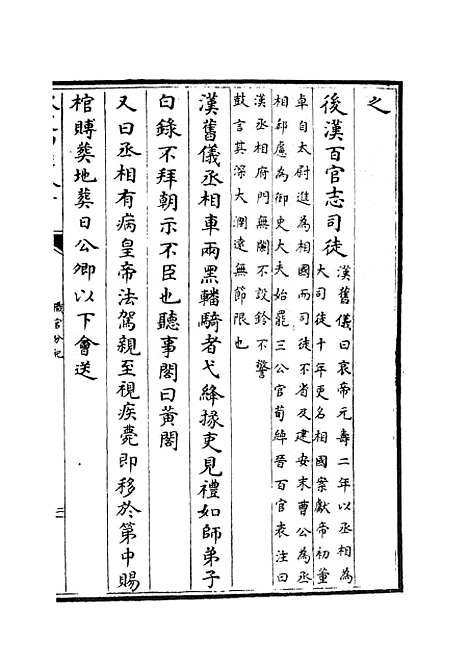 之
後漢百官志司徒漢舊儀曰哀帝元壽二年以丞相為
大司徒十年更名相國案獻帝初董
卓自太尉進為相國而司徒不省及建安末曹公為丞
相郗慮為御史大夫始罷三公官荀綽晉百官表注曰
漢丞相府門無闌不設鈴不警
鼓言其深大濶遠無節限也
漢舊儀丞相車兩黑轓騎者弋絳掾吏見禮如師弟子
白錄不拜朝示不臣也聽事閣曰黃閣
又曰丞相有病皇帝法駕親至視疾薨即移於第中賜
棺賻葬地葬日公卿以下會送
職官分紀
三